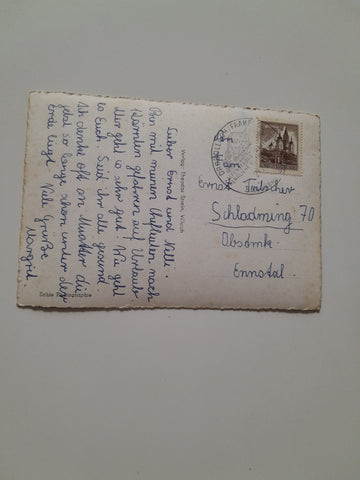 Lieber Ernst und Nelli.
Bin mit meinen Chefleuten nach
Kärnten gefahren auf Urlaub
Mir geht es sehr gut. Wie geht
es Euch. Seid ihr alle gesund.
Ich denke oft an Mutter die
jetzt so lange schon under der
Erde liegt Viele Grüße
Margret
Echte Photographie
Verlag Theodor Stein, Villach
Ernst
Schladming 70
Obstmk.
Ennstal.